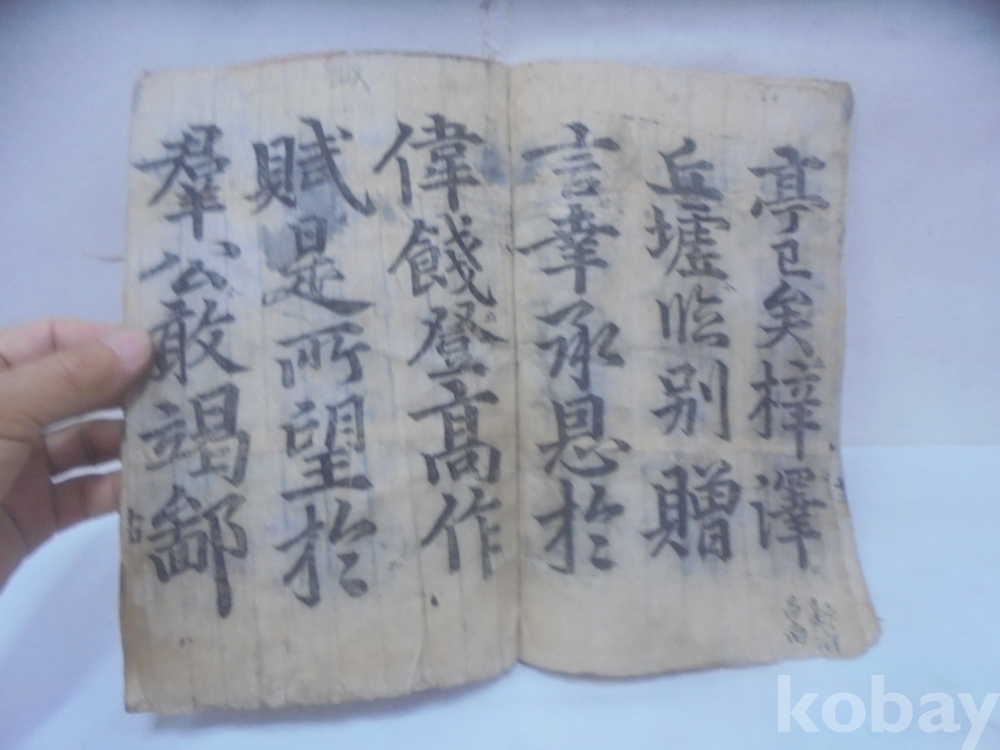 亭已矣梓澤
丘墟临别贈
言幸承恩於
偉餞登高作
賦是所望於
羣公敢竭鄙
kobay